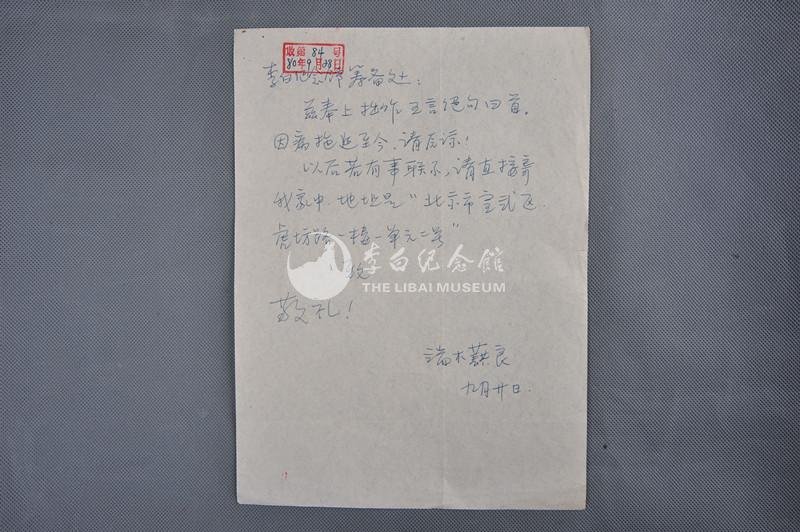 收第84号
80年9月28日
李白纪念馆筹备处：
兹奉上拙作五言绝句四首。
因病拖延至今，请原谅！
以后若有事联系，请直接寄
我家中，地址是“北京市宣武区
虎坊路一楼一单元二号”
此致
李白纪念館
THE LIBAI MUSEUM
敬礼！
端木蕻良
九月廿日.